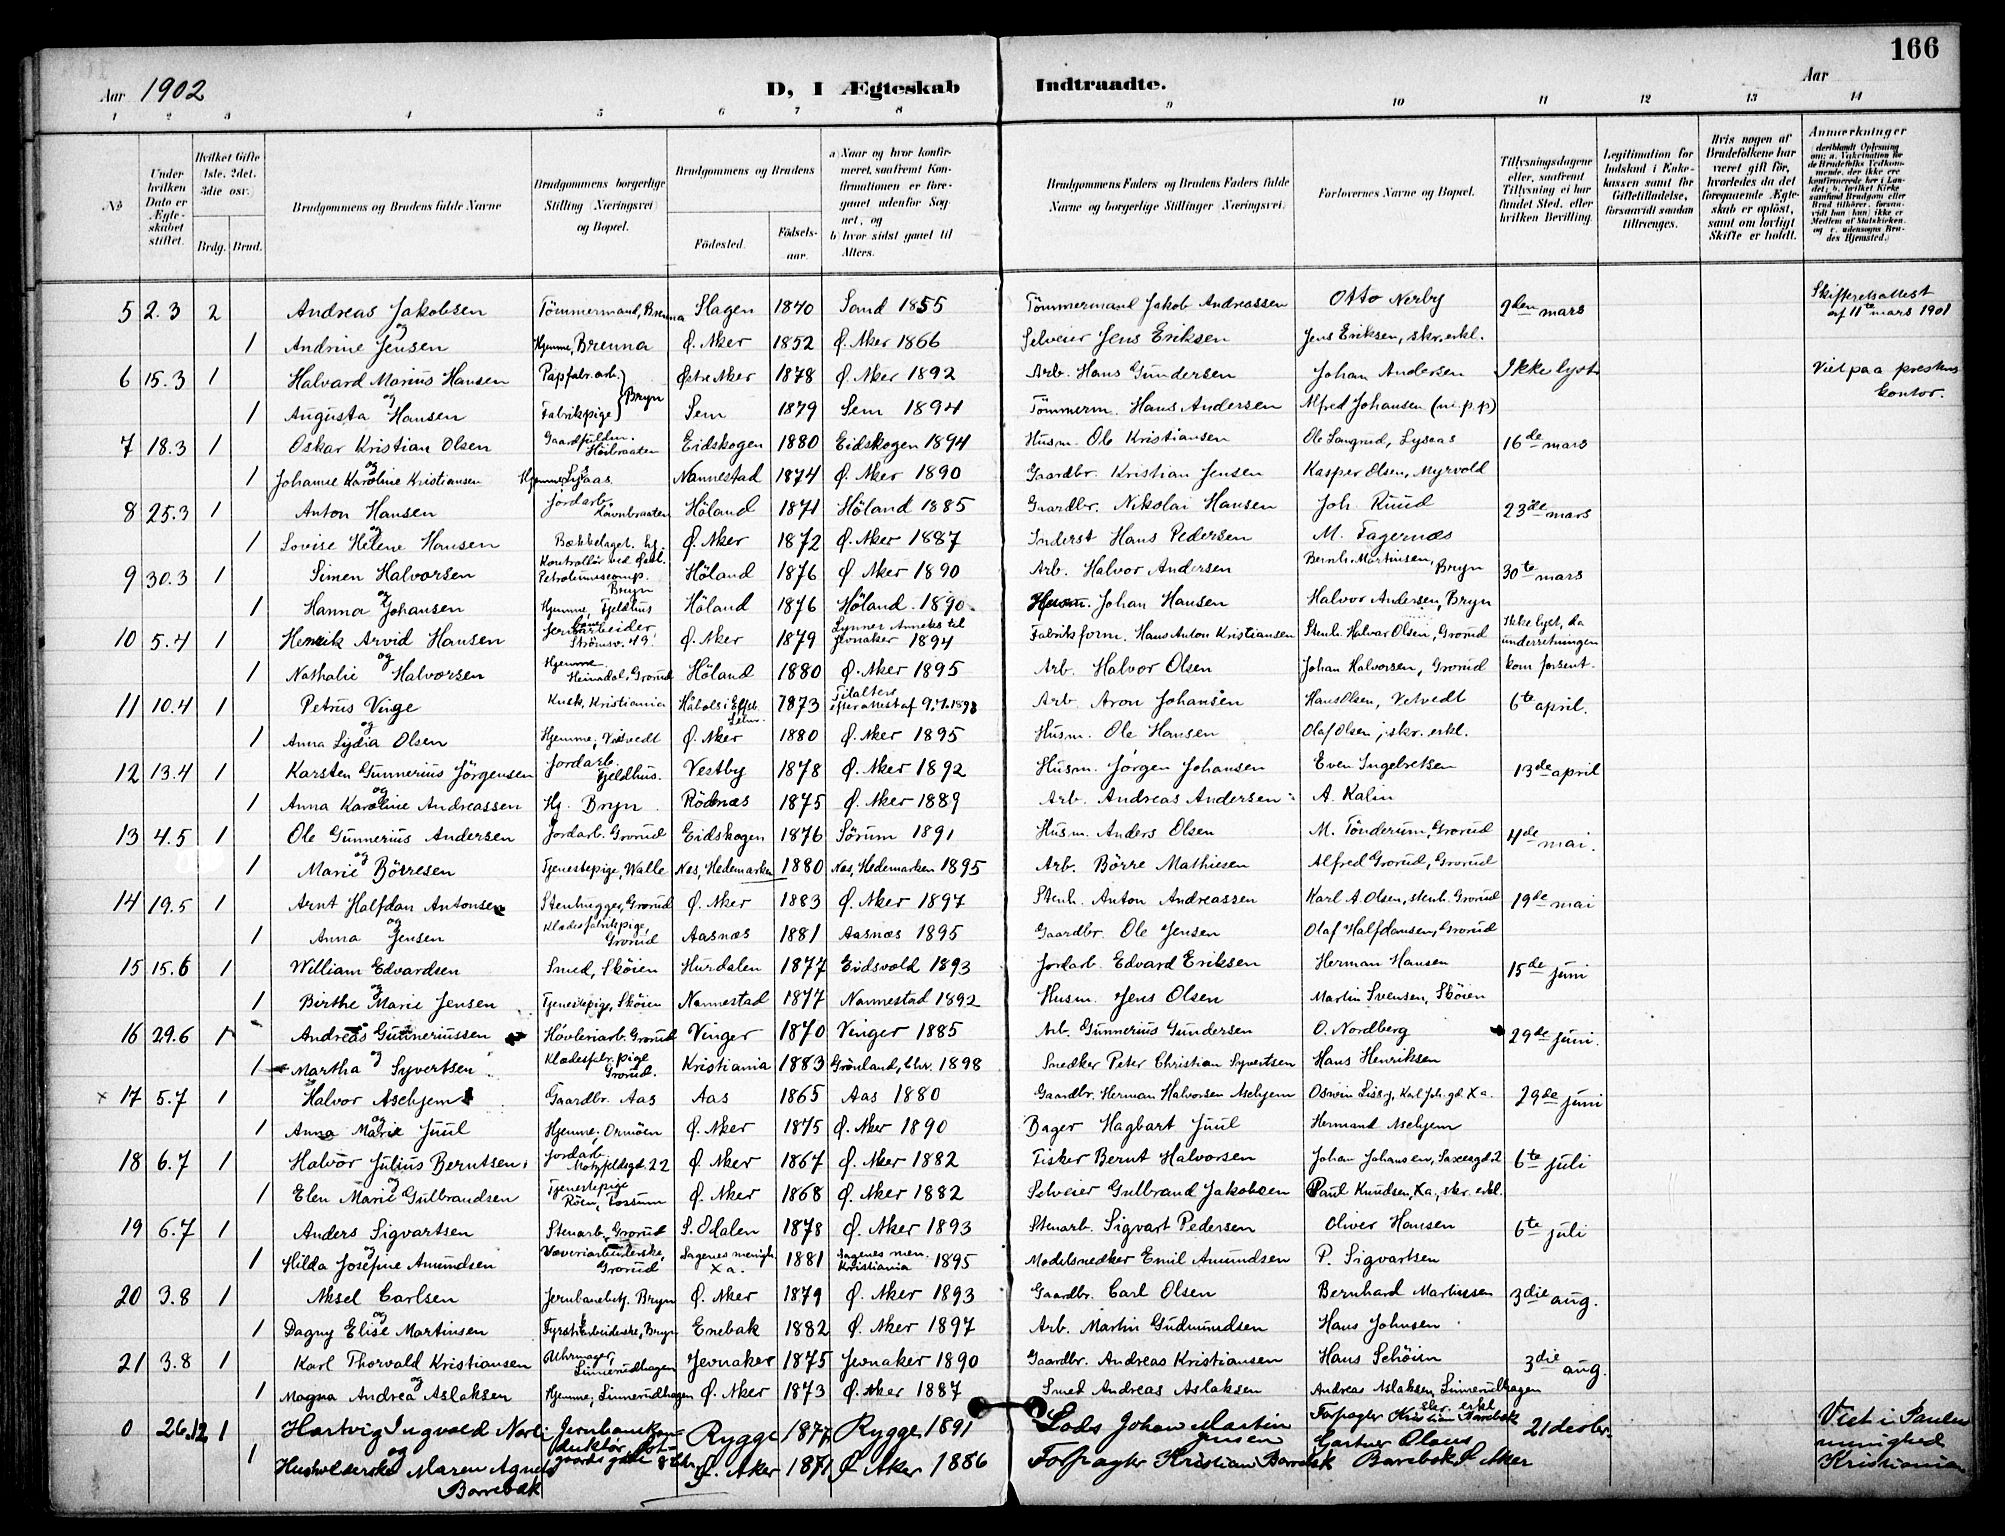 166
Aar 1902 D, I Ægteskab Indtraadte. Aar
1 2 3 4 5 6 7 8 9 10 11 12 13 14
No
Under hvilken Dato er Ægteskabet stiftet.
Hvilket Gifte 1ste, 2det, 3die osv.
Brdg. Brud.
Brudgommens og Brudens fulde Navne
Brudgommens borgerlige Stilling (Næringsvei) og Bopæl.
Brudgommens og Brudens
Fødested. Fødselsaar.
a) Naar og hvor konfirmeret, saafremt Konfirmationen er foregaaet udenfor Sognet, og
b) hvor sidst gaaet til Alters.
Brudgommens Faders og Brudens Faders fulde Navne og borgerlige Stillinger (Næringsvei)
Forlovernes Navne og Bopæl.
Tillysningsdagene eller, saafremt Tillysning ei har fundet Sted, efter hvilken Bevilling.
Legitimation for Indskud i Enkekassen samt for Giftetilladelse, forsaavidt saadan tiltrænges.
Hvis nogen af Brudefolkene har været gift før, hvorledes da det foregaaende Ægteskab er opløst, samt om lovligt Skifte er holdt.
Anmærkninger
5 2.3 2 Andreas Jakobsen Tömmermand, Brenna Slagen 1840 Sand 1855 Tömmermand Jakob Andreassen Otto Nerby 9den mars Skifteretsattest af 11te mars 1901
og
1 Andrine Jensen Hjemme, Brenna Ø. Aker 1852 Ø. Aker 1866 Selveier Jens Eriksen Jens Eriksen, skr. erkl.
6 15.3 1 Halvard Marius Hansen Papfabr. arb. Bryn Østre Aker 1878 Ø. Aker 1892 Arb. Hans Gundersen Johan Andersen Ikke lyst Viet paa prestens kontor.
og
1 Augusta Hansen Fabrikpige Sem 1879 Sem 1894 Tömmerm. Hans Andersen Alfred Johansen (m. p. p)
7 18.3 1 Oskar Kristian Olsen Eidskogen 1880 Eidskogen 1894 Husm. Ole Kristiansen Ole Langrud, Lysaas 16de mars
og
1 Johanne Karoline Kristiansen Hjemme, Lysaas. Nannestad 1874 Ø. Aker 1890 Gaardbr. Kristian Jensen Kasper Olsen, Myrvold
8 25.3 1 Anton Hansen Jordarb. Höland 1871 Höland 1885 Gaardbr. Nikolai Hansen Joh. Ruud 23de mars
og
1 Lovise Helene Hansen Bækkelaget. Ø. Aker 1872 Ø. Aker 1887 Inderst Hans Pedersen M. Fagernæs
9 30.3 1 Simen Halvorsen Kontrollör ved Østl. Petroleumscomp. Bryn Höland 1876 Ø. Aker 1890 Arb. Halvor Andersen Bernh. Martinsen, Bryn 30te mars
og
1 Hanna Johansen Hjemme, Fjeldhus Höland 1876 Höland 1890 Husm. Johan Hansen Halvor Andersen, Bryn
10 5.4 1 Henrik Arvid Hansen Jernbanearbeider Strömsv. 49. Ø. Aker 1879 Lunner Anneks til Jevnaker 1894 Fabrikform. Hans Anton Kristiansen Stenh. Halvor Olsen, Grorud Ikke lyst, da underretningen kom forsent.
og
1 Nathalie Halvorsen Hjemme Heimdal, Grorud Höland 1880 Ø. Aker 1895 Arb. Halvor Olsen Johan Halvorsen, Grorud
11 10.4 1 Petrus Vinge Kusk, Kristiania 1873 Tilalters efter attest af 9.7.1898 Arb. Aron Johansen Hans Olsen, Vetvedt 6te april.
og
1 Anna Lydia Olsen Hjemme, Vetvedt Ø. Aker 1880 Ø. Aker 1895 Husm. Ole Hansen Olaf Olsen, skr. erkl.
12 13.4 1 Karsten Gunnerius Jörgensen Jordarb. Fjeldhus. Vestby 1878 Ø. Aker 1892 Husm. Jörgen Johansen Even Ingebretsen 13de april
og
1 Anna Karoline Andreassen Hj. Bryn Rödenæs 1875 Ø. Aker 1889 Arb. Andreas Andersen A. Kalin
13 4.5 1 Ole Gunnerius Andersen Jordarb. Grorud Eidskogen 1876 Sörum 1891 Husm. Anders Olsen M. Tönderum, Grorud 4de mai.
og
1 Marie Börresen Tjenestepige, Walle Nes, Hedemarken 1880 Nes, Hedemarken 1895 Arb. Börre Mathiesen Alfred Grorud, Grorud
14 19.5 1 Arnt Halfdan Antonsen Stenhugger, Grorud Ø. Aker 1883 Ø. Aker 1897 Stenh. Anton Andreassen Karl A. Olsen, stenh. Grorud 19de mai
og
1 Anna Jensen Klædesfabrikpige, Grorud Aasnæs 1881 Aasnæs 1895 Gaardbr. Ole Jensen Olaf Halfdansen, Grorud
15 15.6 1 William Edvardsen Smed, Sköien Hurdalen 1877 Eidsvold 1893 Jordarb. Edvard Eriksen Herman Hansen 15de juni
og
1 Birthe Marie Jensen Tjenestepige, Sköien Nannestad 1877 Nannestad 1892 Husm. Jens Olsen Martin Svensen, Sköien
16 29.6 1 Andreas Gunneriussen Hövleriarb. Grorud Vinger 1870 Vinger 1885 Arb. Gunnerius Gundersen O. Nordberg 29de juni.
og
1 Martha Syvertsen Klædesfabr. pige Grorud. Kristiania 1883 Grönland, Chr. 1898 Snedker Peter Christian Syvertsen Hans Henriksen
× 17 5.7 1 Halvor Askjem Gaardbr. Aas Aas 1865 Aas 1880 Gaardbr. Herman Halvorsen Askjem Karl Joh. gd. Xa. 29de juni
og
1 Anna Marie Juul Hjemme, Ormöen Ø. Aker 1875 Ø. Aker 1890 Bager Hagbart Juul Hermand Askjem
18 6.7 1 Halvor Julius Berntsen Jordarb. Motzfeldtsgd. 22 Ø. Aker 1867 Ø. Aker 1882 Fisker Bernt Halvorsen Johan Johansen, Saxesgd. 2 6te juli
og
1 Elen Marie Gulbrandsen Tjenestepige Röen, Fossum Ø. Aker 1868 Ø. Aker 1882 Selveier Gulbrand Jakobsen Paul Knudsen, Xa, skr. erkl.
19 6.7 1 Anders Sigvartsen Stenarb. Grorud S. Odalen 1878 Ø. Aker 1893 Stenarb. Sigvart Pedersen Oliver Hansen 6te juli
og
1 Hilda Josefine Amundsen Væveriarbeiderske, Grorud Sagenes menigh. Xa. 1881 Sagenes men. Kristiania 1895 Modelsnedker Emil Amundsen P. Sigvartsen
20 3.8 1 Aksel Carlsen Jernbanebetj. Bryn Ø. Aker 1879 Ø. Aker 1893 Gaardbr. Carl Olsen Bernhard Martinsen 3die aug.
og
1 Dagny Elise Martinsen Fyrstikarbeiderske, Bryn Enebak 1882 Ø. Aker 1897 Arb. Martin Gudmundsen Hans Johnsen
21 3.8 1 Karl Thorvald Kristiansen Uhrmager, Linnerudhagen Jevnaker 1875 Jevnaker 1890 Gaardbr. Andreas Kristiansen Hans Schöien 3die aug.
og
1 Magna Andrea Aslaksen Hjemme, Linnerudhagen Ø. Aker 1873 Ø. Aker 1887 Smed Andreas Aslaksen Andreas Aslaksen, Linnerudhagen skr. erkl
0 26.12 1 Hartvig Ingvald Norli Jernbanekonduktör Rygge 1877 Rygge 1891 Lods Johan Martin Jensen Forpagter Kristian Barrebæk 21 desbr. Viet i Paulus menighed Kristiania
og
1 Husholderske Maren Agnes Barrebæk Ø. Aker 1871 Ø Aker 1886 Forpagter Kristian Barrebæk Gartner Olaus Barrebæk Ø Aker